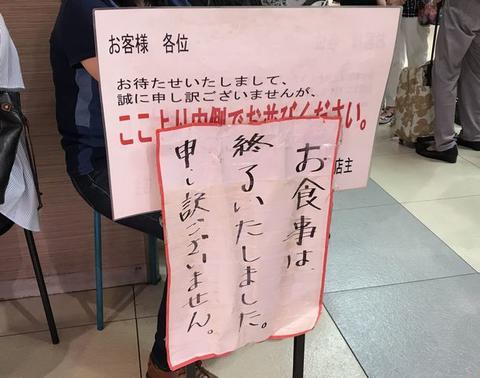 お客様 各位
お待たせいたしまして、
誠に申し訳ございませんが、
ここより内側でお並びください。
店主
お食事は、
終了いたしました。
申し訳ございません。